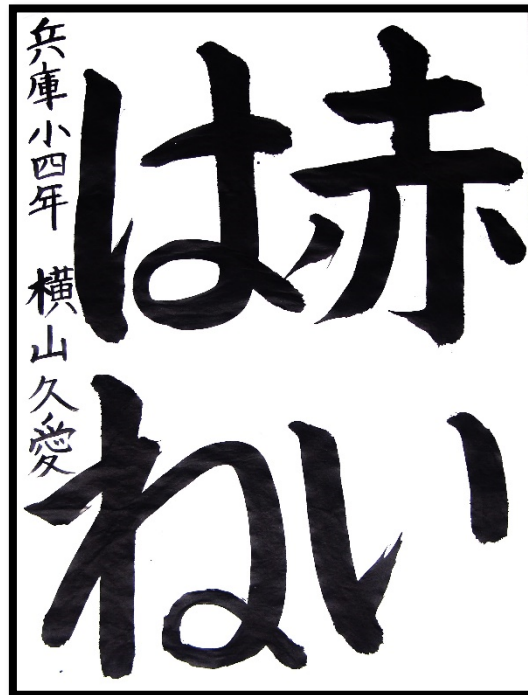 赤い
はね
兵庫小四年 横山久愛